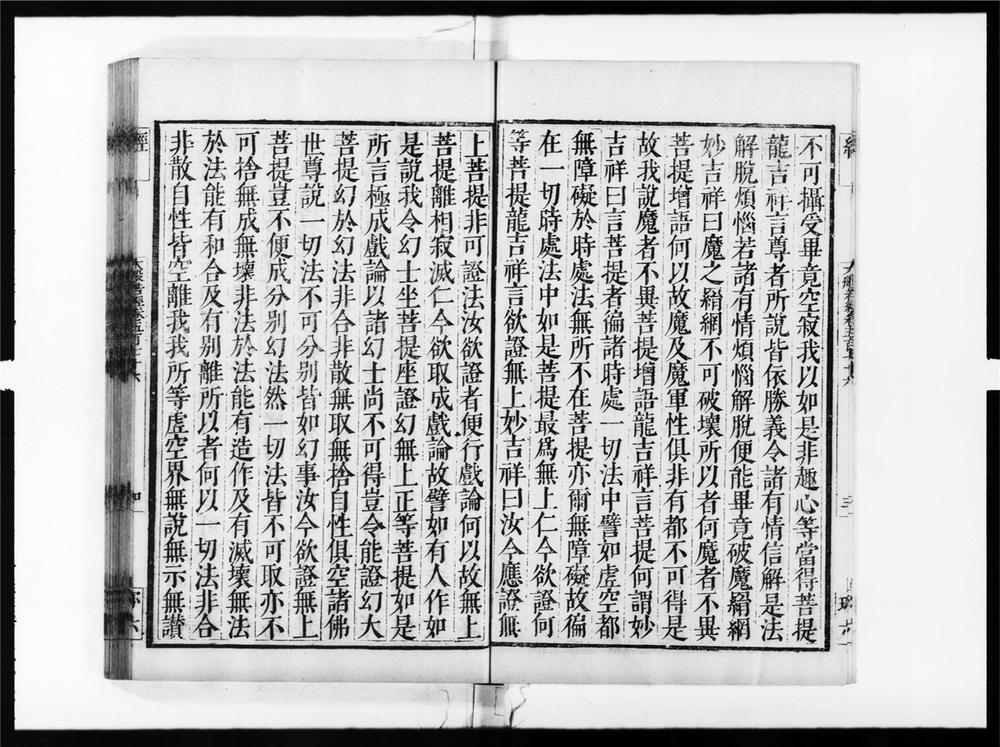 不可攝受畢竟空寂我以如是非趣心等當得菩提
龍吉祥言尊者所說皆依勝義令諸有情信解是法
解脫煩惱若諸有情煩惱解脫便能畢竟破魔羂網
妙吉祥曰魔之羂網不可破壞所以者何魔者不異
菩提增語何以故魔及魔軍性俱非有都不可得是
故我說魔者不異菩提增語龍吉祥言菩提何謂妙
吉祥曰言菩提者徧諸時處一切法中譬如虛空都
無障礙於時處法無所不在菩提亦爾無障礙故徧
在一切時處法中如是菩提最爲無上仁今欲證何
等菩提龍吉祥言欲證無上妙吉祥曰汝今應證無
上菩提非可證法汝欲證者便行戲論何以故無上
菩提離相寂滅仁今欲取成戲論故譬如有人作如
是說我令幻士坐菩提座證幻無上正等菩提如是
所言極成戲論以諸幻士尚不可得豈令能證幻大
菩提幻於幻法非合非散無取無捨自性俱空諸佛
世尊說一切法不可分別皆如幻事汝今欲證無上
菩提豈不便成分別幻法然一切法皆不可取亦不
可捨無成無壞非法於法能有造作及有滅壞無法
於法能有和合及有別離所以者何以一切法非合
非散自性皆空離我我所等虛空界無說無示無讚